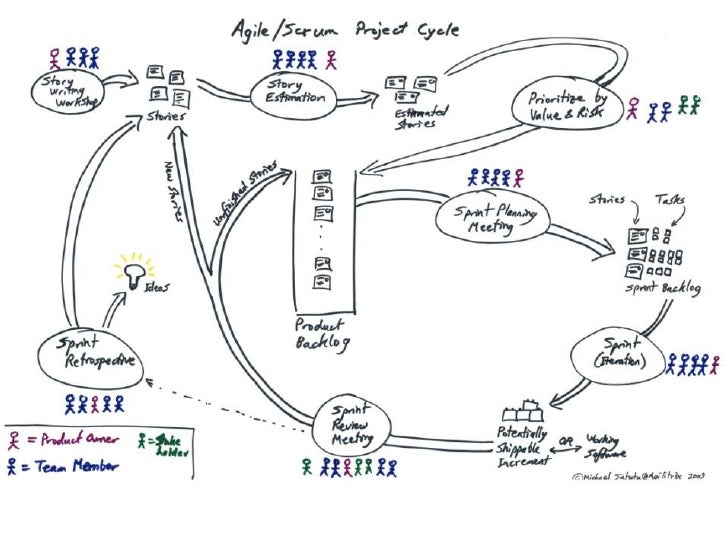 Agile/Scrum Project Cycle
Story
Writing
Workshop
Stories
Story
Estimation
Estimated
Stories
Prioritize by
Value & Risk
New Stories
Unfinished Stories
Sprint Planning
Meeting
Stories
Tasks
Sprint Backlog
Ideas
Product
Backlog
Sprint
Retrospective
Sprint
(Iteration)
Sprint
Review
Meeting
Potentially
Shippable
Increment
OR
Working
Software
= Product Owner
= Stake
holder
= Team Member
©Michael
2009